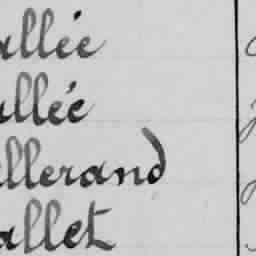 allée
allée
llerand
allet